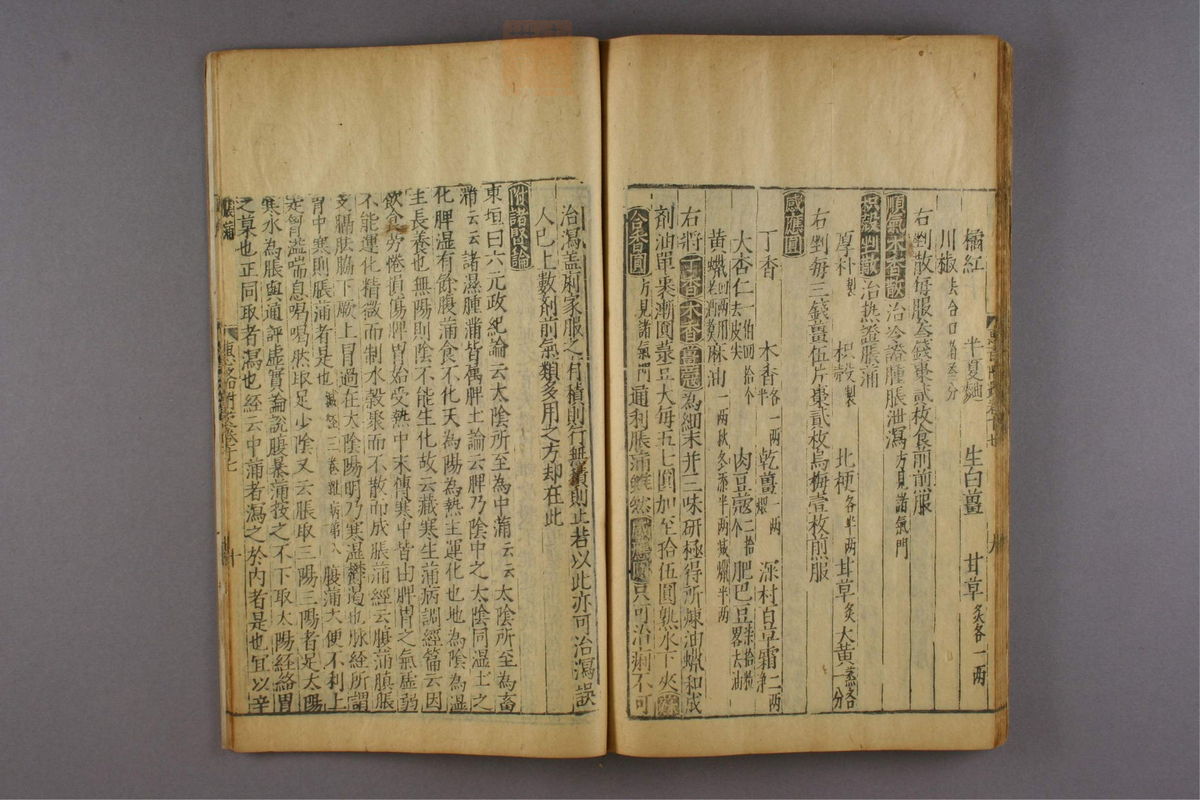 橘紅 半夏麯 生白薑 甘草炙各一兩
川椒去合口者叁分
右剉散每服叁錢棗貳枚食前煎服
順氣木香散治冷證腫脹泄瀉方見諸氣門
枳殼剉散治熱證脹滿
厚朴製 枳殼製 北梗各半兩 甘草炙 大黃蒸各一分
右剉每三錢薑伍片棗貳枚烏梅壹枚煎服
感應圓
丁香 木香各一兩半 乾薑煨一兩 深村百草霜二兩
大杏仁一伯四拾个去皮尖 肉豆蔻二拾个 肥巴豆
黃蠟 麻油一兩秋冬添半兩減蠟半兩
右將丁香木香薑蔻為細末并三味研極得所煉油蠟和成
劑油單裹漸圓菉豆大每五七圓加至拾伍圓熟水下夾蘇
合香圓方見諸氣門通利脹滿雖然感應圓只可治痢不可
治瀉盖痢家服之有積則行無積則止若以此亦可治瀉誤
人已上數劑前氣類多用之方却在此
附諸賢論
東垣曰六元政紀論云太陰所至為中滿云云太陰所至為畜
滿云云諸濕腫滿皆屬脾土論云脾乃陰中之太陰同濕土之
化脾濕有餘腹滿食不化天為陽為熱主運化也地為陰為濕
主長養也無陽則陰不能生化故云藏寒生滿病調經篇云因
飲食勞倦損傷脾胃始受熱中末傳寒中皆由脾胃之氣虛弱
不能運化精微而制水穀聚而不散而成脹滿經云腹滿䐜脹
支膈胠脇下厥上冒過在太陰陽明乃寒濕鬱遏也脉經所謂
胃中寒則脹滿者是也 腹滿大便不利上
走胷嗌喘息喝喝然取足少陰又云脹取三陽三陽者足太陽
寒水為脹與通評虛實論說腹暴滿按之不下取太陽經絡胃
之募也正同取者瀉也經云中滿者瀉之於內者是也宜以辛